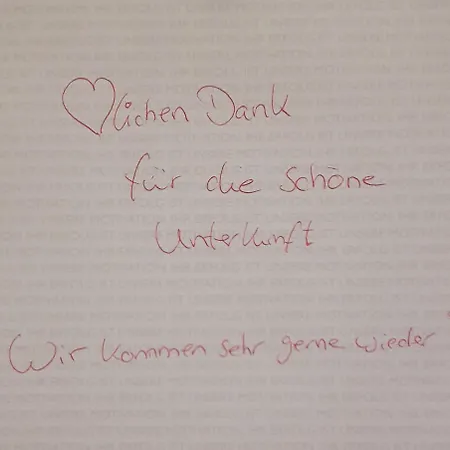 ♡lichen Dank
für die schöne
Unterkunft
Wir kommen sehr gerne wieder